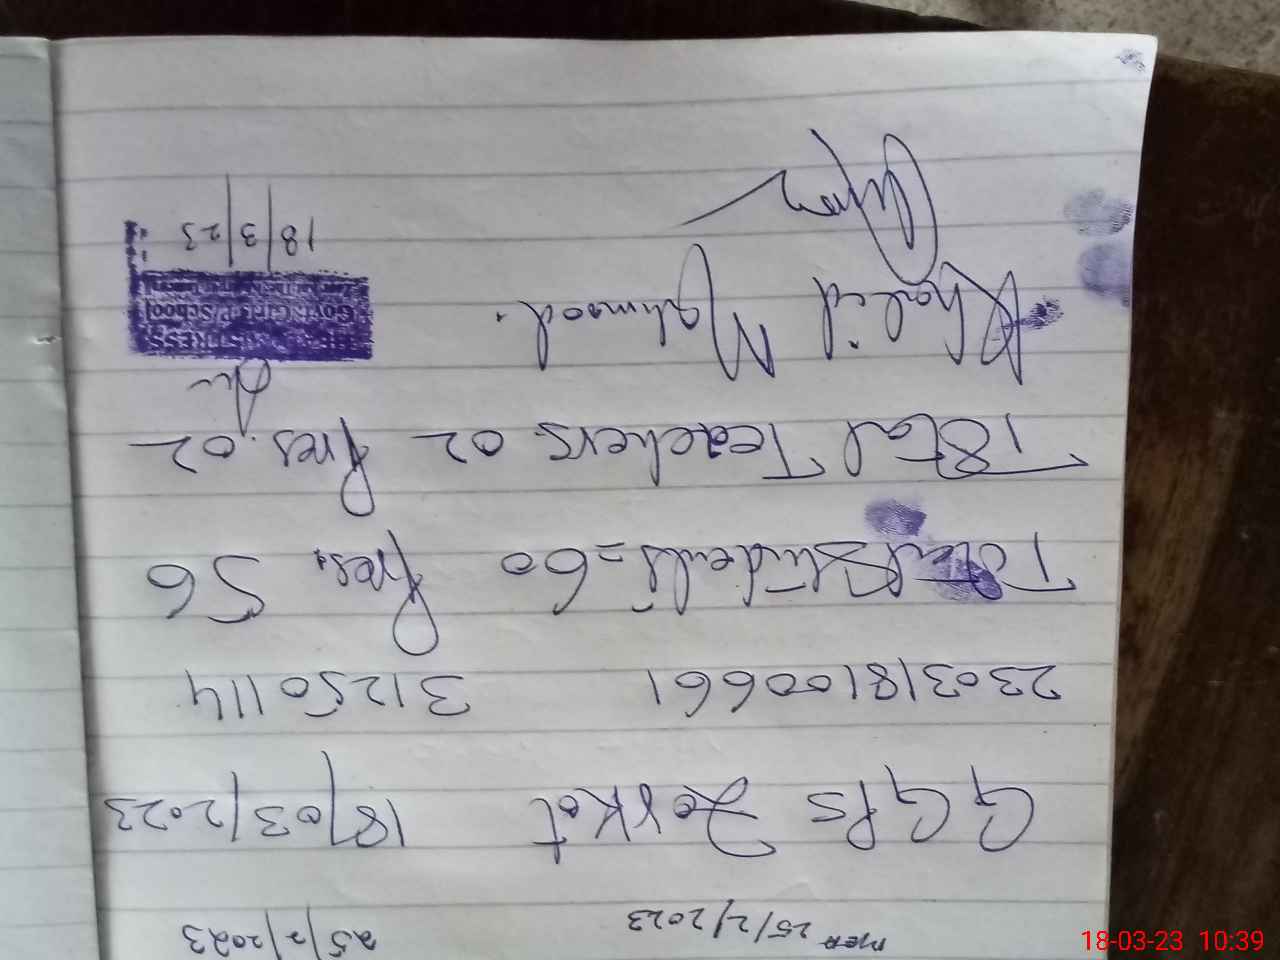 25/2/2023 25/2/2023
GGPS Zorkot 18/03/2023
230318100661 31250114
Total Students=60 Pres. 56
Total Teachers 02 Pres. 02
Khalid Mahmood.
Govt: Girls P/School
18/3/23
18-03-23 10:39